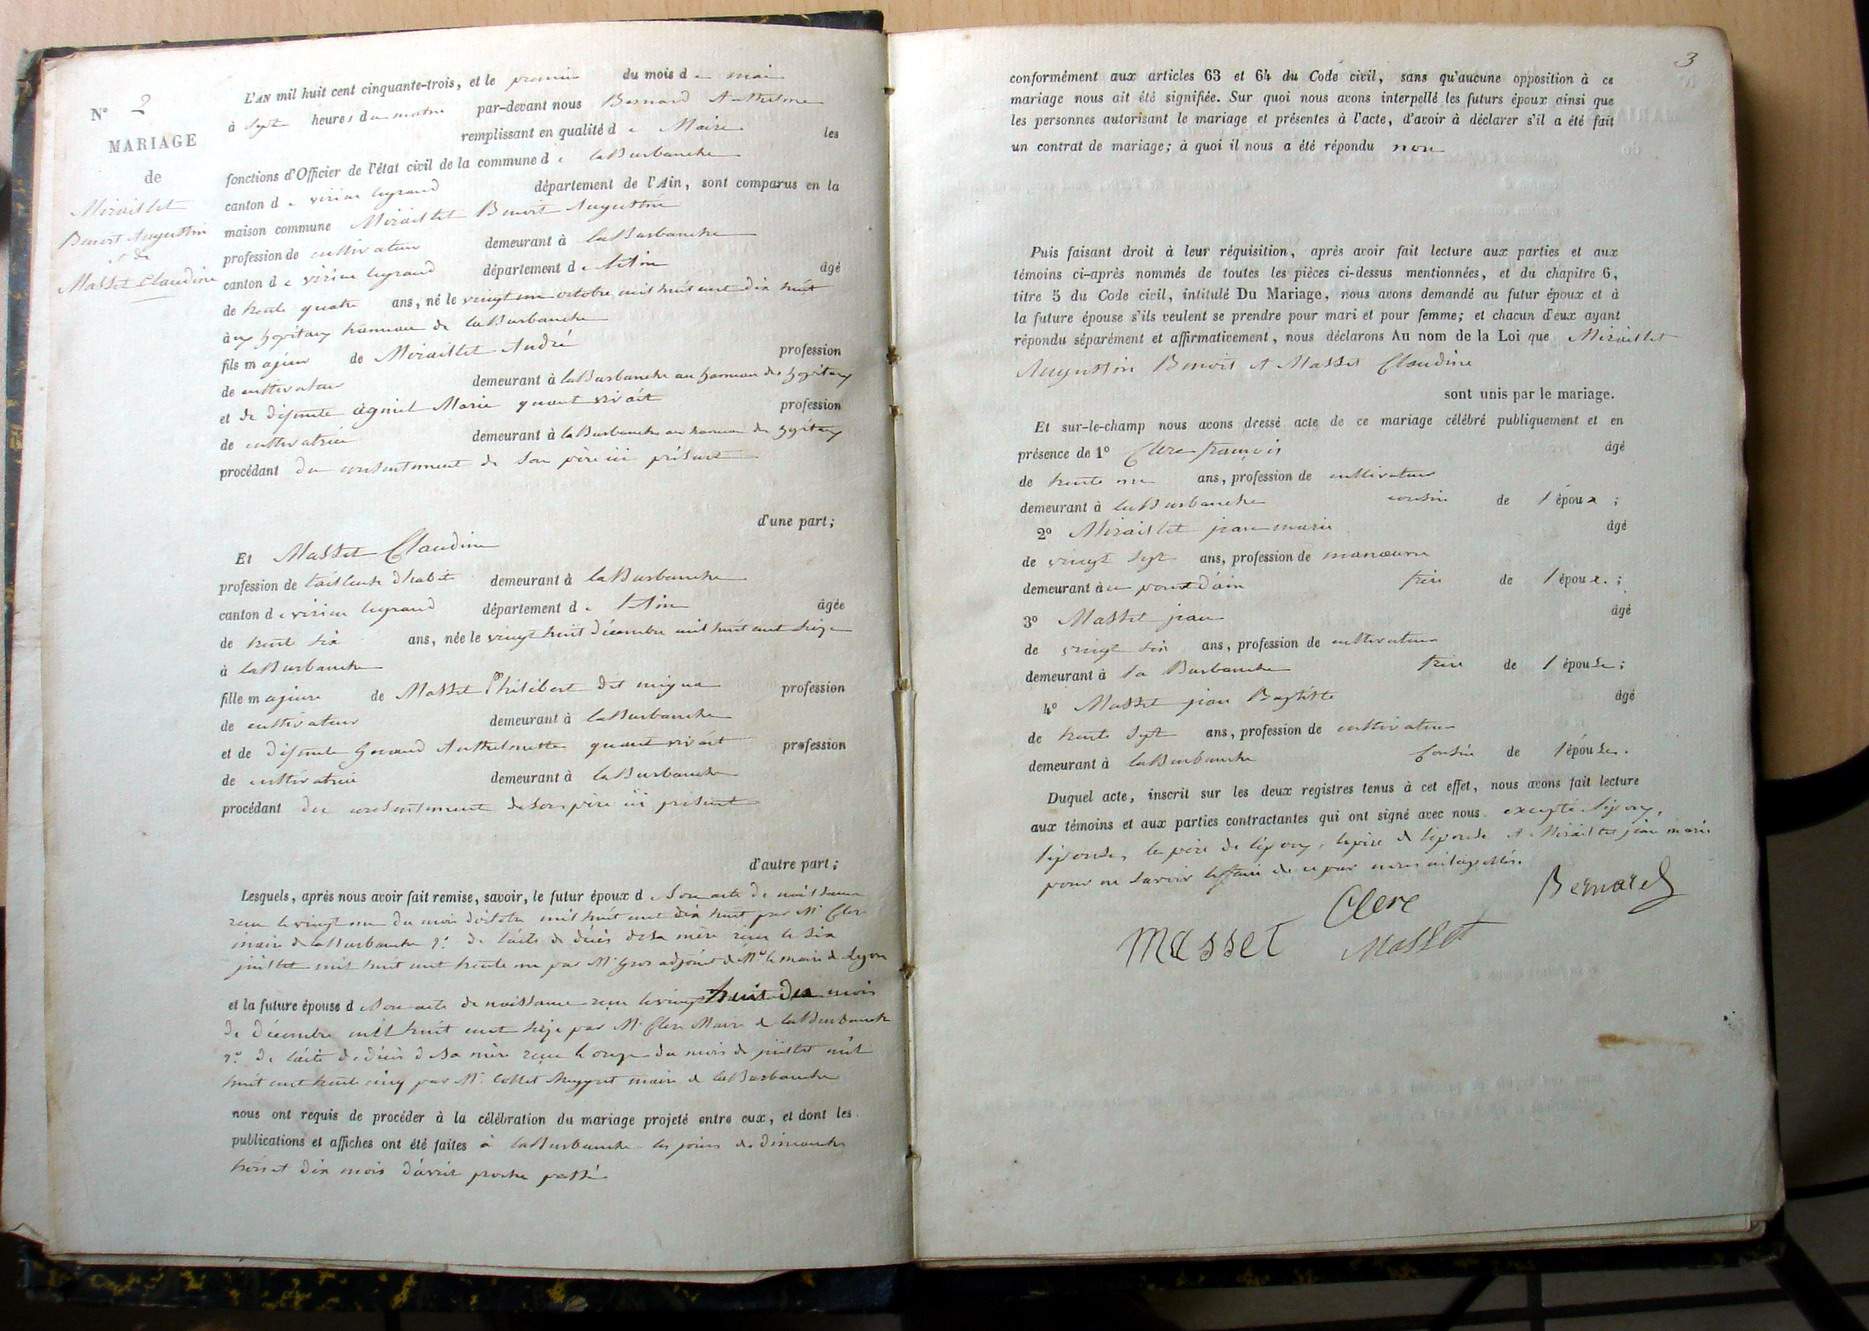 N° 2
MARIAGE
de
Miraillet
Benoit Augustin
et de
Masset Claudine
L'AN mil huit cent cinquante-trois, et le premier du mois de mai
à sept heures du matin par-devant nous Bernard Anthelme
remplissant en qualité de Maire les
fonctions d'Officier de l'état civil de la commune de laBurbanche
canton de virieu legrand département de l'Ain, sont comparus en la
maison commune Miraillet Benoit Augustin
profession de cultivateur demeurant à laBurbanche
canton de virieu legrand département de l'Ain âgé
de trente quatre ans, né le vingt un octobre mil huit cent dix huit
hameau de laBurbanche
fils majeur de Miraillet André profession
de cultivateur demeurant à laBurbanche au hameau des
et de défunte Marie quant vivait profession
de cultivatrice demeurant à laBurbanche au hameau des
procédant du consentement de son père ici présent
d'une part;
Et Masset Claudine
profession de tailleuse d'habit demeurant à laBurbanche
canton de virieu legrand département de l'Ain âgée
de trente six ans, née le vingt huit décembre mil huit cent seize
à laBurbanche
fille majeure de Masset Philibert dit profession
de cultivateur demeurant à laBurbanche
et de défunte Anthelmette quant vivait profession
de cultivatrice demeurant à laBurbanche
procédant du consentement de son père ici présent
d'autre part;
Lesquels, après nous avoir fait remise, savoir, le futur époux de Son acte de naissance
reçu le vingt un du mois d'octobre mil huit cent dix huit par Mr Clerc
maire de laBurbanche 2° de l'acte de décès de sa mère reçu le six
juillet mil huit cent trente un par Mr Gros adjoint de Mr le maire de Lyon
et la future épouse de Son acte de naissance reçu le vingt huit du mois
de décembre mil huit cent seize par Mr Clerc Maire de laBurbanche
2° de l'acte de décès de sa mère reçu le onze du mois de juillet mil
huit cent trente cinq par Mr Collet maire de laBurbanche
nous ont requis de procéder à la célébration du mariage projeté entre eux, et dont les
publications et affiches ont été faites à laBurbanche les jours de dimanche
trois et dix mois d'avril proche passé
3
conformément aux articles 63 et 64 du Code civil, sans qu'aucune opposition à ce
mariage nous ait été signifiée. Sur quoi nous avons interpellé les futurs époux ainsi que
les personnes autorisant le mariage et présentes à l'acte, d'avoir à déclarer s'il a été fait
un contrat de mariage; à quoi il nous a été répondu non
Puis faisant droit à leur réquisition, après avoir fait lecture aux parties et aux
témoins ci-après nommés de toutes les pièces ci-dessus mentionnées, et du chapitre 6,
titre 5 du Code civil, intitulé Du Mariage, nous avons demandé au futur époux et à
la future épouse s'ils veulent se prendre pour mari et pour femme; et chacun d'eux ayant
répondu séparément et affirmativement, nous déclarons Au nom de la Loi que Miraillet
Augustin Benoit et Masset Claudine
sont unis par le mariage.
Et sur-le-champ nous avons dressé acte de ce mariage célébré publiquement et en
présence de 1° Clerc françois âgé
de trente un ans, profession de cultivateur
demeurant à laBurbanche cousin de l'époux ;
2° Miraillet jean marie âgé
de vingt sept ans, profession de manœuvre
demeurant à au pont d'ain frère de l'époux. ;
3° Masset jean âgé
de vingt six ans, profession de cultivateur
demeurant à la Burbanche frère de l'épouse ;
4° Masset jean Baptiste âgé
de trente sept ans, profession de cultivateur
demeurant à laBurbanche Cousin de l'épouse.
Duquel acte, inscrit sur les deux registres tenus à cet effet, nous avons fait lecture
aux témoins et aux parties contractantes qui ont signé avec nous excepté l'époux,
l'épouse, le père de l'époux, le père de l'épouse et Miraillet jean marie
pour ne savoir le faire de ce par nous interpellés.
Clerc Bernard
masset Masset